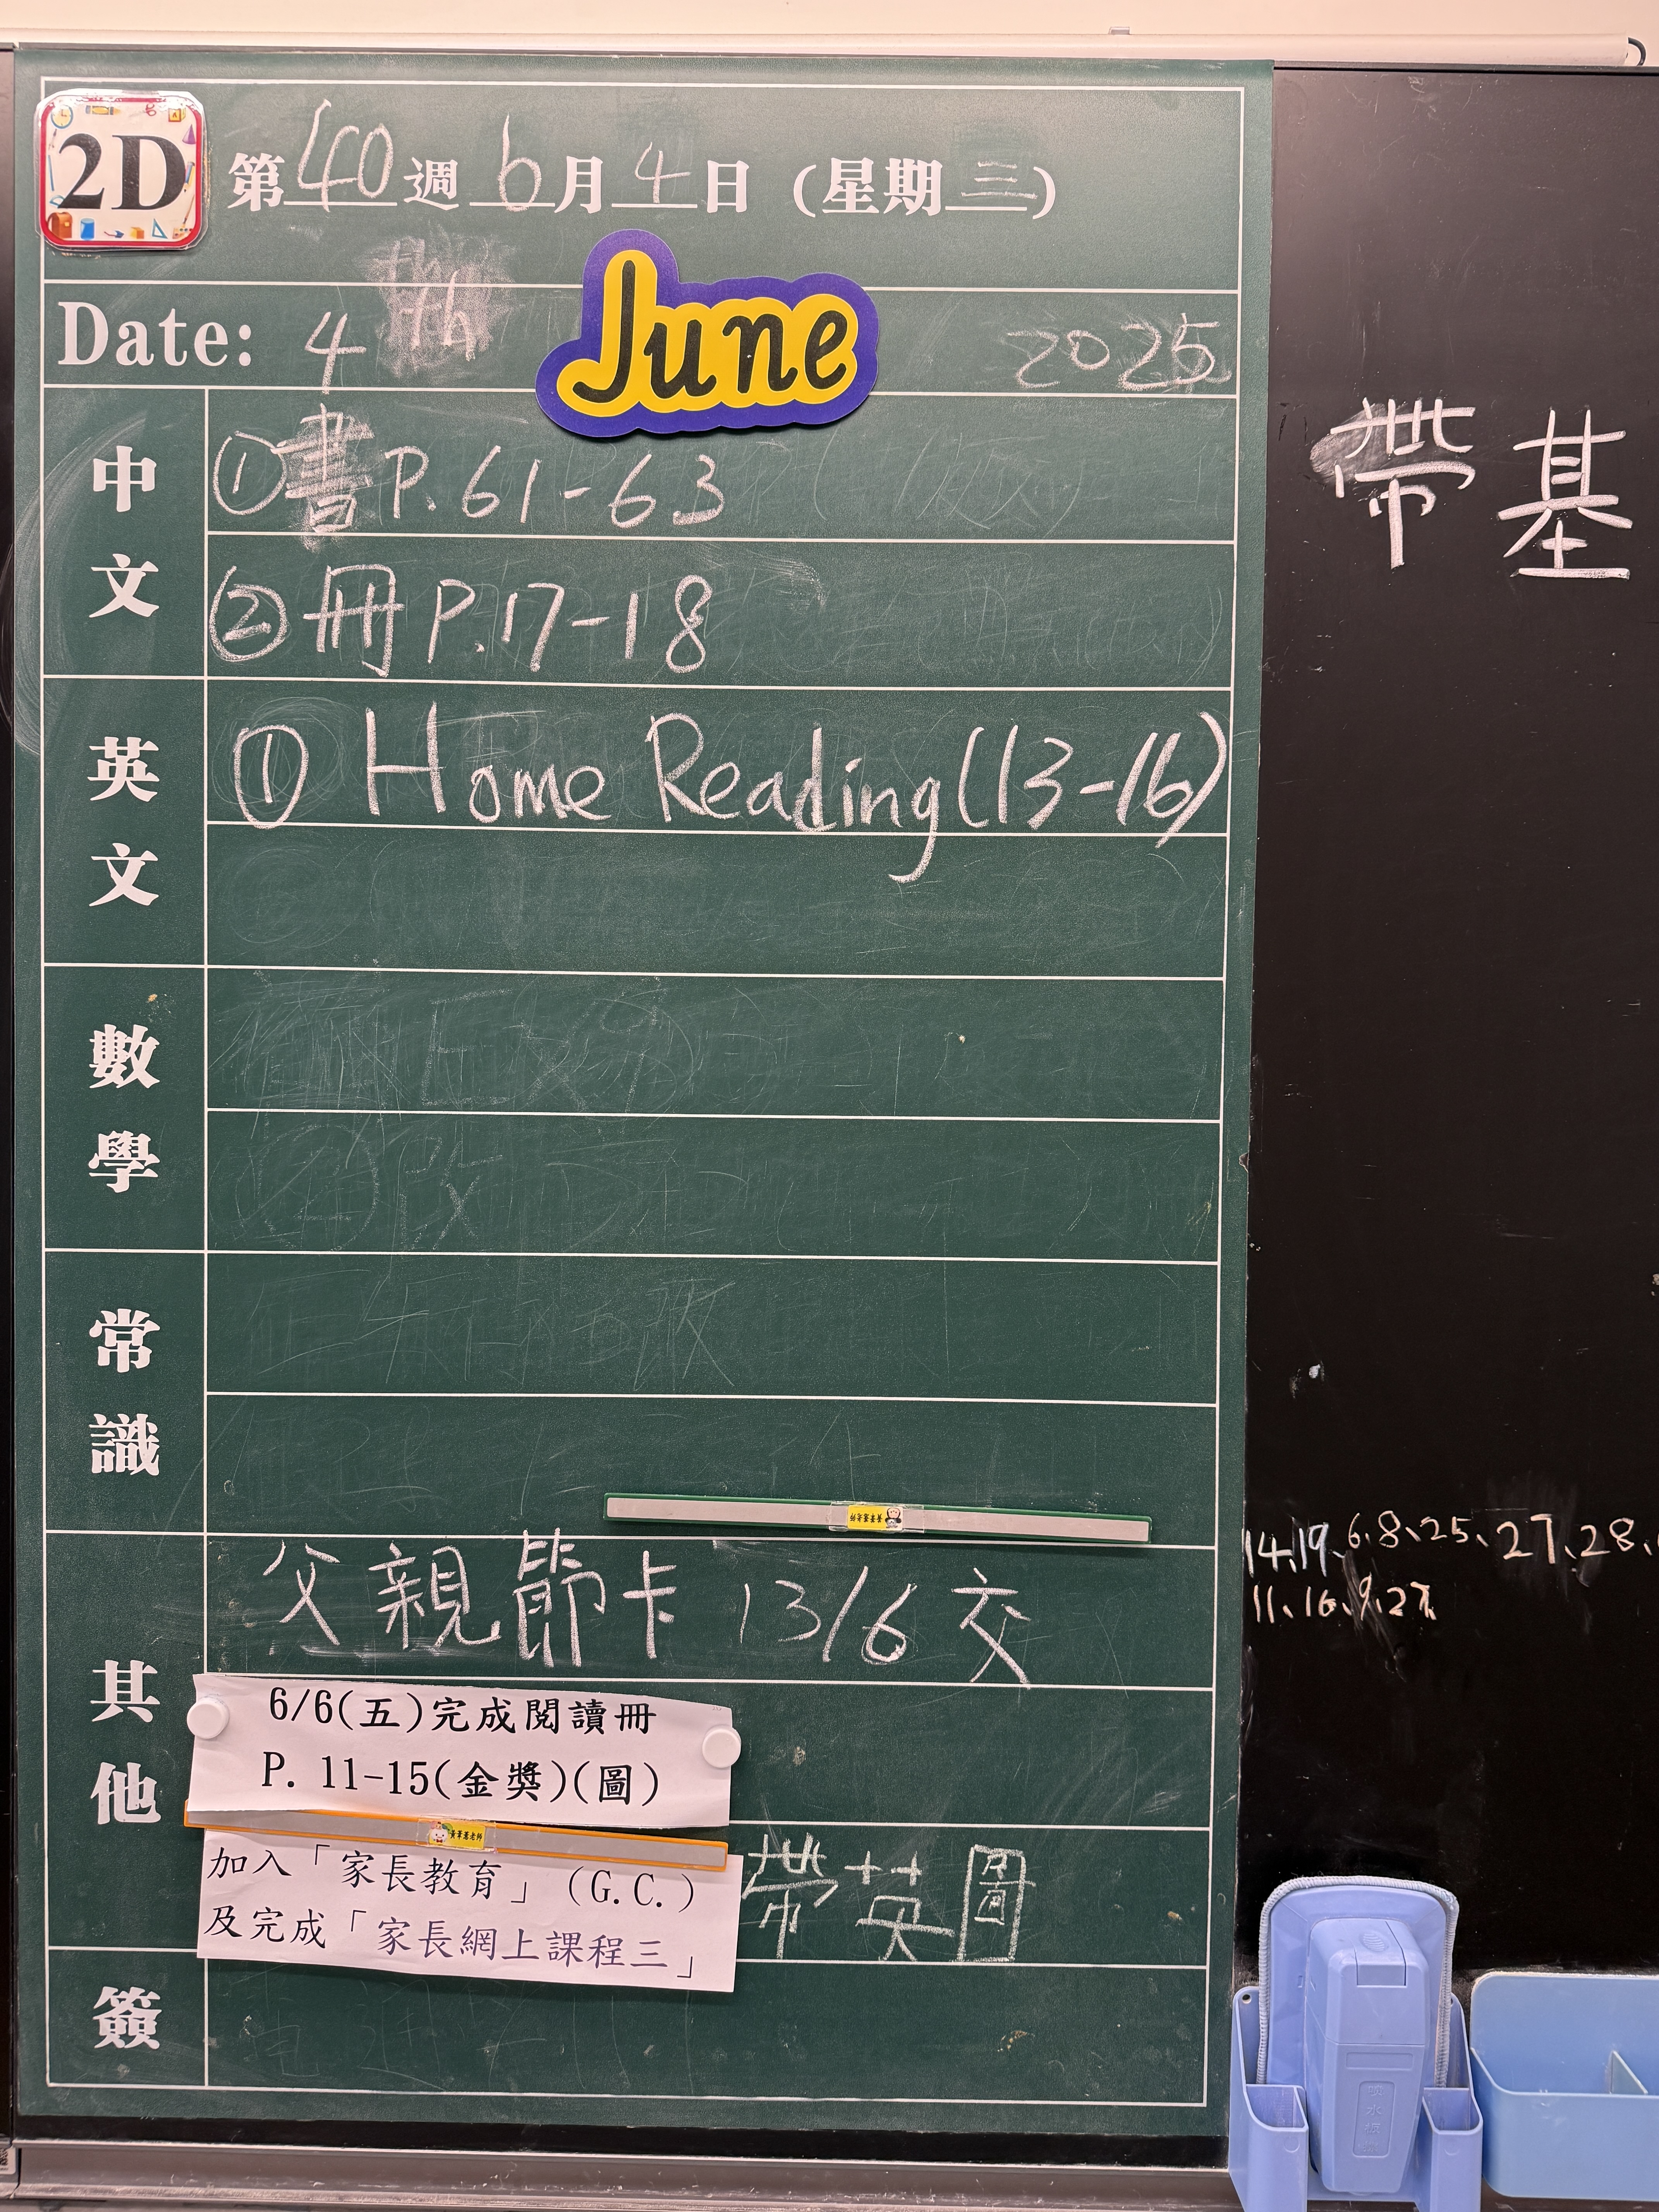 2D
第40週 6月4日 (星期三)
Date: 4th June 2025
中文
①書P.61-63
②冊P.17-18
英文
① Home Reading(13-16)
數學
常識
其他
父親節卡 13/6 交
6/6(五)完成閱讀冊
P. 11-15(金獎)(圖)
加入「家長教育」(G.C.)
及完成「家長網上課程三」
帶英圖
簽
帶基
14、19、6、8、25、27、28、
11、16、9、2